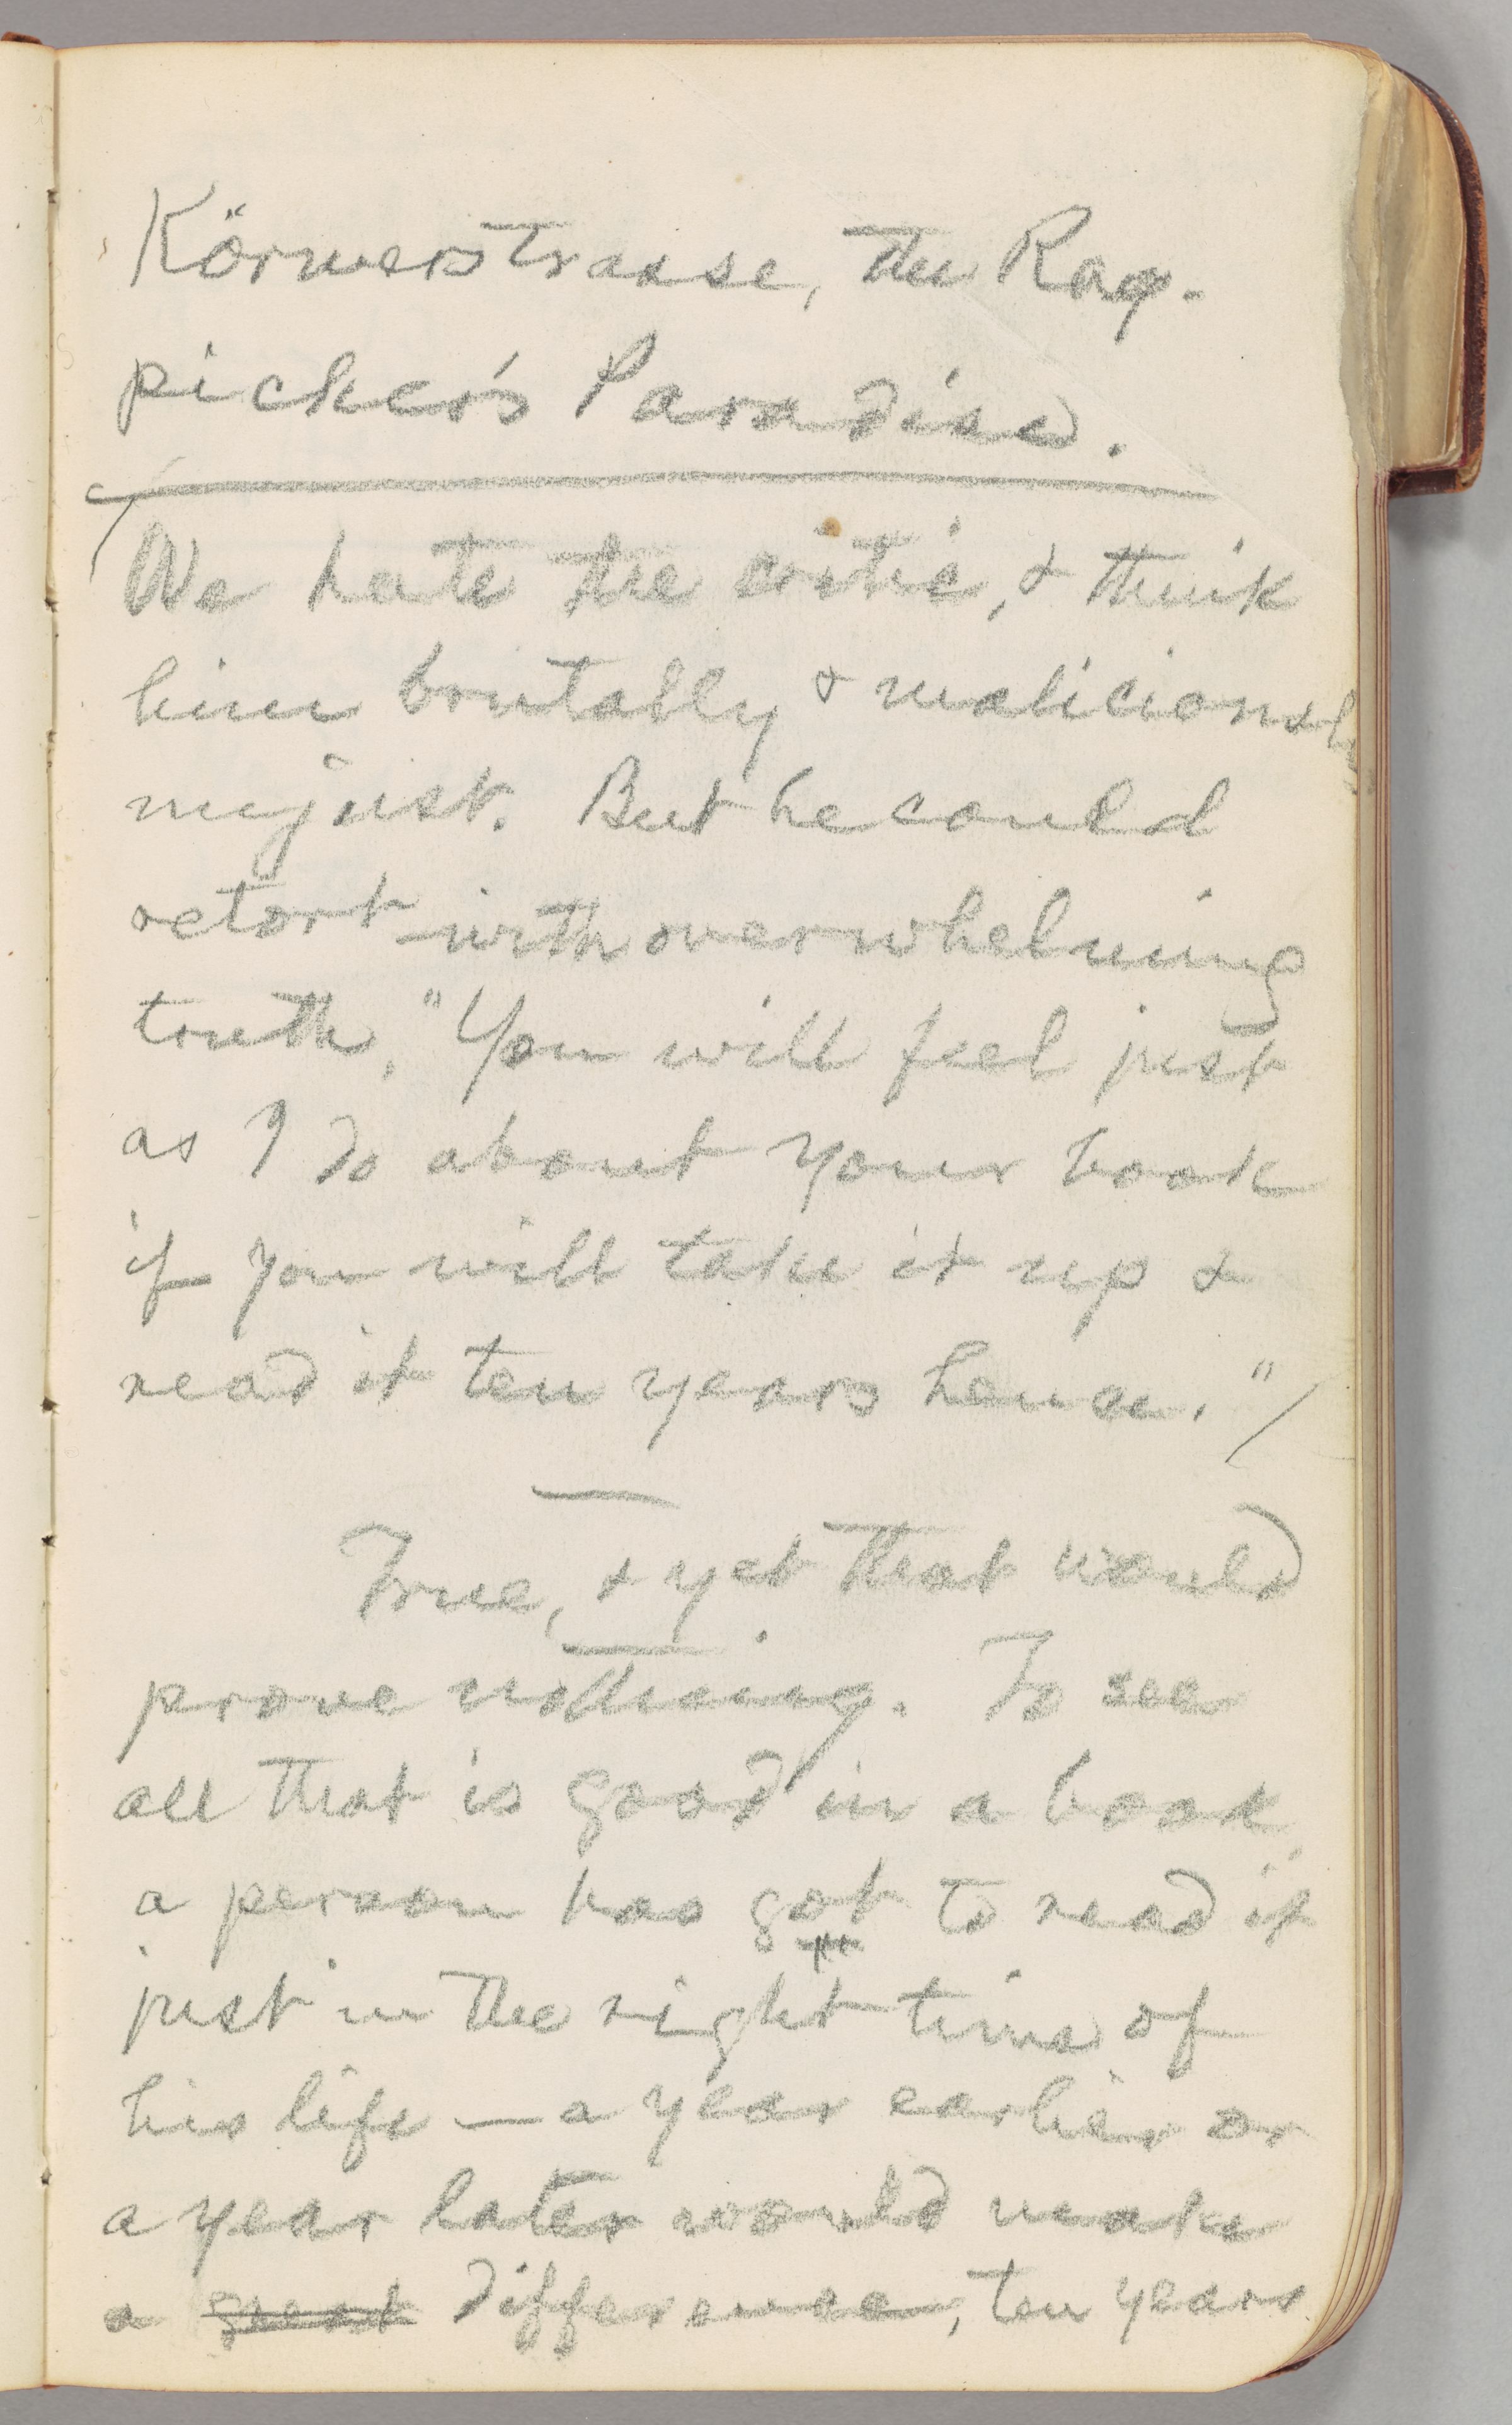 Körnerstrasse, the Rag-
picker's Paradise.
We hate the critic, & think
him brutally & maliciously
unjust. But he could
retort with overwhelming
truth, "You will feel just
as I do about your book
if you will take it up &
read it ten years hence."
True, & yet that would
prove nothing. To see
all that is good in a book
a person has got to read it
just in the right time of
his life — a year earlier or
a year later would make
a great difference, ten years